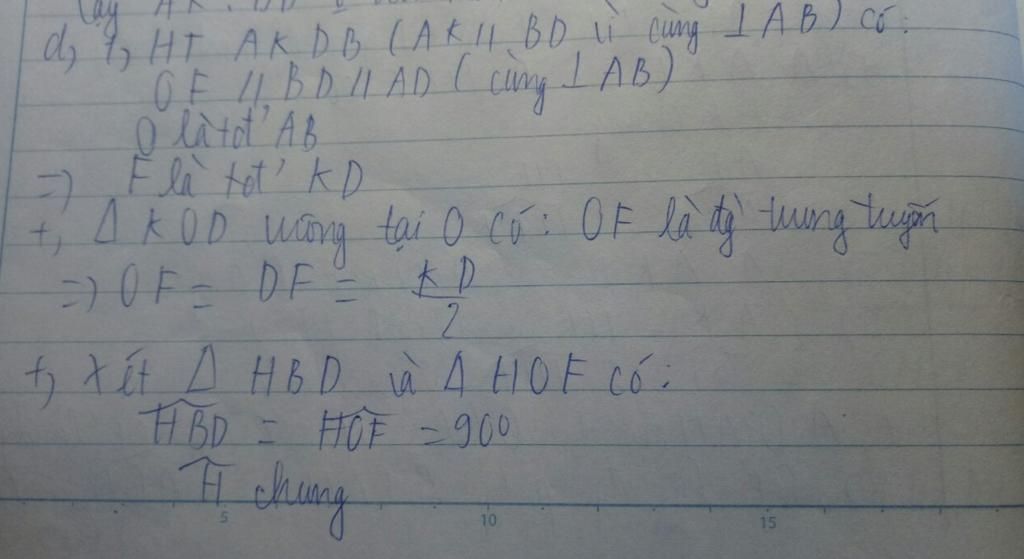 d, +, HT AKDB (AK // BD vì cùng ⊥ AB) có:
OF // BD // AD (cùng ⊥ AB)
O là tđ' AB
=) F là tđ' KD
+, Δ KOD vuông tại O có: OF là đg` trung tuyến
=) OF = DF = KD/2
+, Xét Δ HBD và Δ HOF có:
HBD = HOF = 90°
H chung
5 10 15